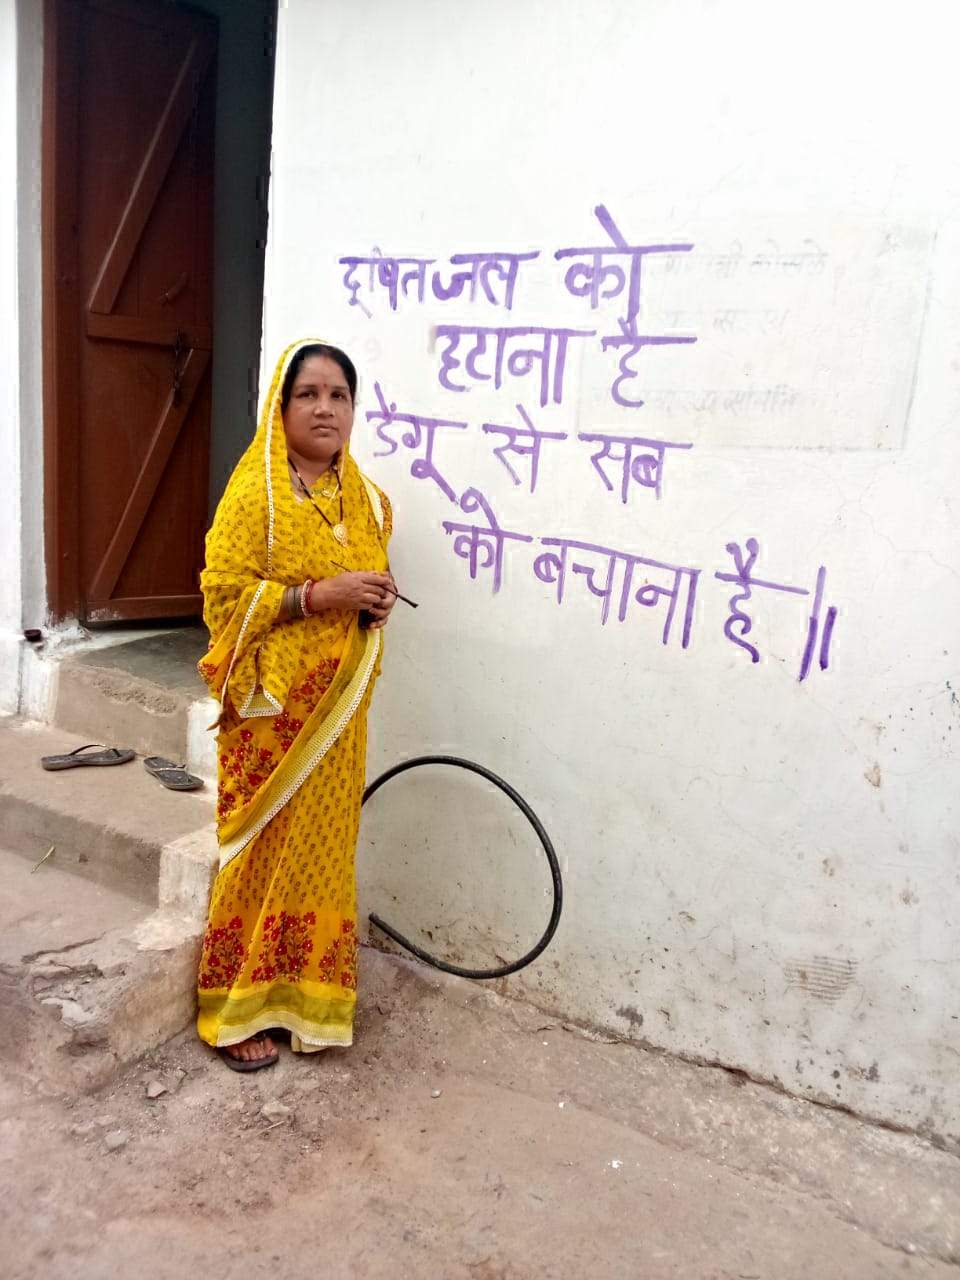 दूषित जल को
हटाना है
डेंगू से सब
को बचाना है॥